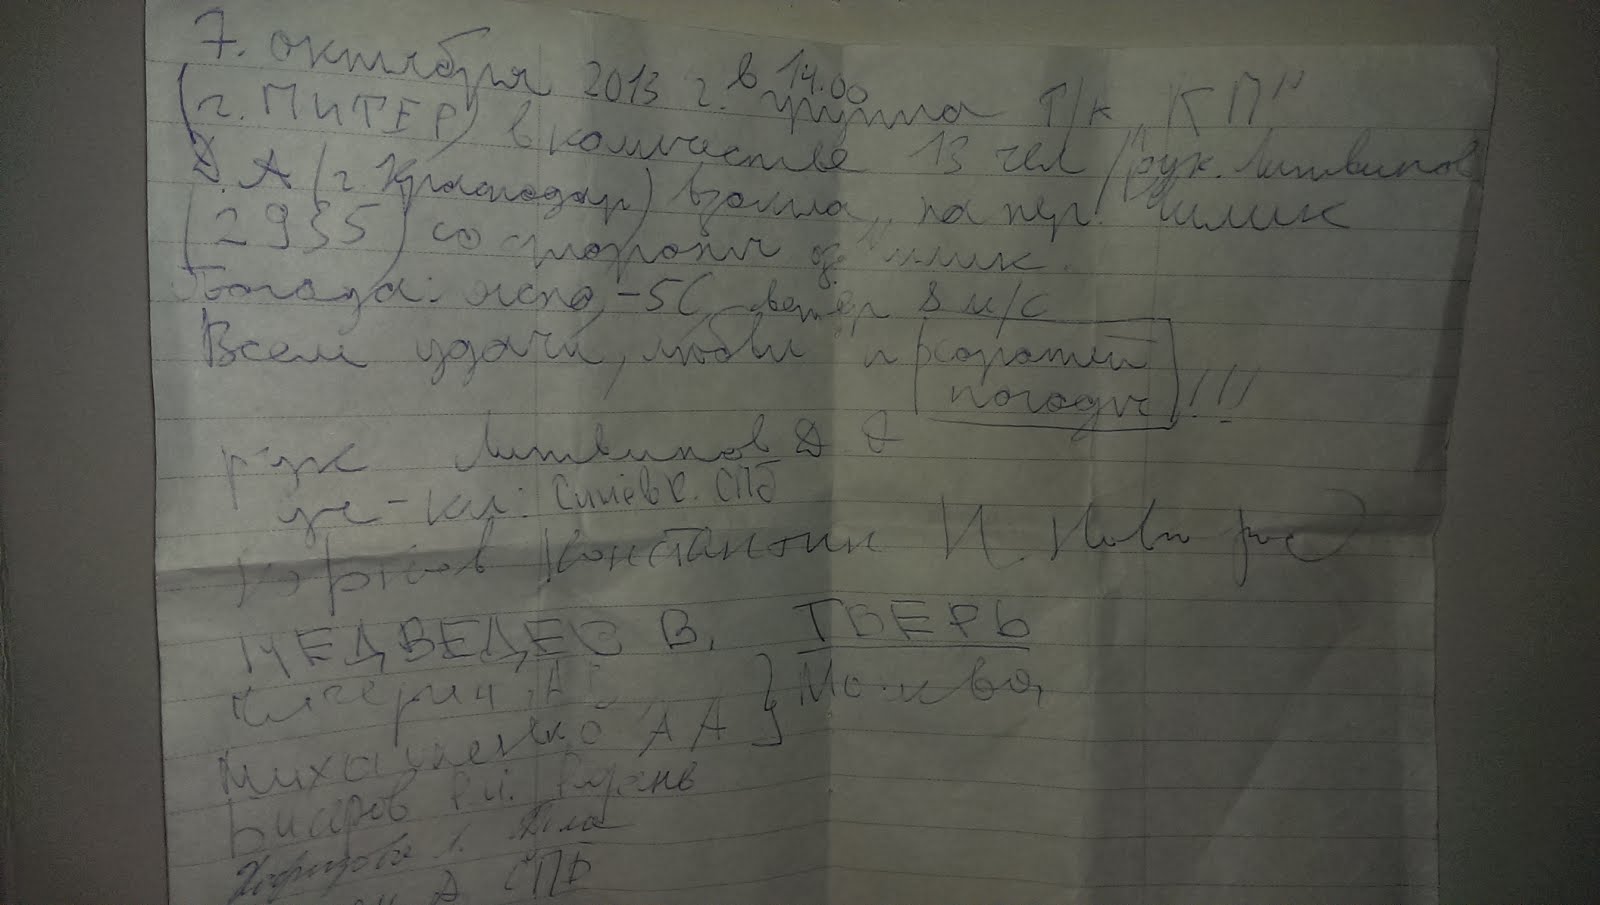 7. октября 2013 г. в 14.00 группа т/к "КП"
(г. ПИТЕР) в количестве 13 чел /рук. Литвинов
Д.А (г Краснодар) взошла на пер. Чилик
(2935) со стороны оз.
Погода: ясно, -5С, ветер 8 м/с
Всем удачи, любви и хорошей
погоды!!!
рук Литвинов Д
уч-ки: Синёв К. СПб
Константин Н. Новгород
МЕДВЕДЕВ В. ТВЕРЬ
А
Михаленко АА } Москва
Бисеров Р.И. Рязань
Л.
Д СПБ